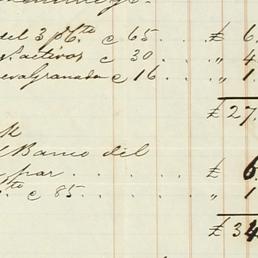 del 3 p%to c 65 . . . £ 6
s. activos c 30 . . . „ 4
eva Granada c 16 . . . „ 1
£ 27
l Banco del
par . . . . . . £ 6
to c 85 . . . . . „ 1
£ 34